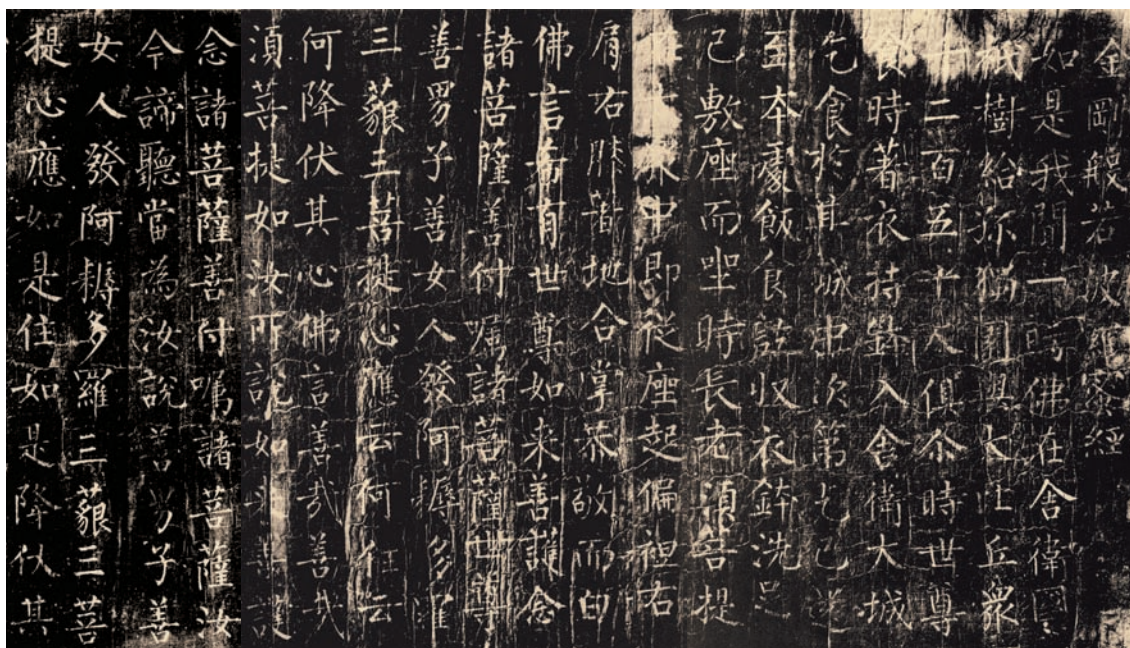 金剛般若波羅蜜經
如是我聞一時佛在舍衛國
祇樹給孤獨園與大比丘眾
十二百五十人俱尒時世尊
食時著衣持鉢入舍衛大城
乞食於其城中次第乞已還
至本處飯食訖収衣鉢洗足
已敷座而坐時長老須菩提
在大眾中即從座起偏袒右
肩右膝著地合掌恭敬而白
佛言希有世尊如来善護念
諸菩薩善付囑諸菩薩世尊
善男子善女人發阿耨多羅
三藐三菩提心應云何住云
何降伏其心佛言善哉善哉
須菩提如汝所說如來善護
念諸菩薩善付囑諸菩薩汝
今諦聽當為汝說善男子善
女人發阿耨多羅三藐三菩
提心應如是住如是降伏其